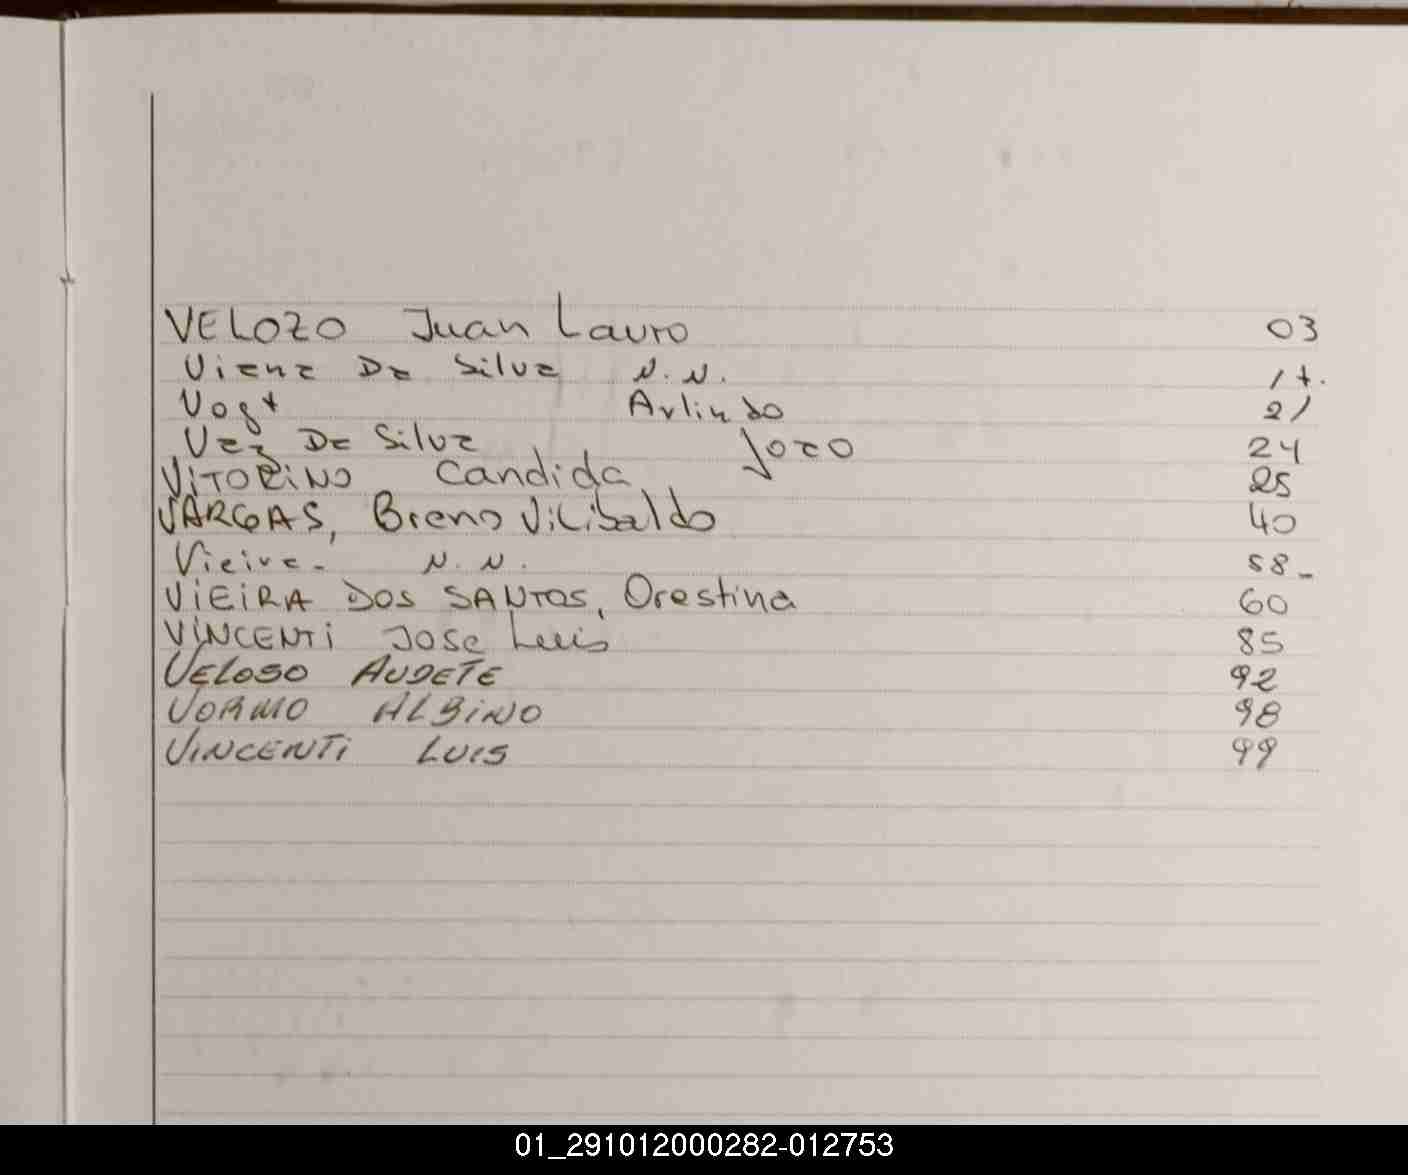 VELOZO Juan Lauro 03
Viana Da Silva N.N. 17.
Vogt Arlindo 21
Vaz Da Silva Joao 24
ViTORiNO Candida 25
VARGAS, Breno Vilibaldo 40
Vieira- N.N. 58-
ViEiRA DOS SANTOS, Orestina 60
ViNCENTi Jose Luis 85
VELOSO AUDETE 92
VORMO ALBiNO 98
ViNCENTi LUIS 99
01_291012000282-012753